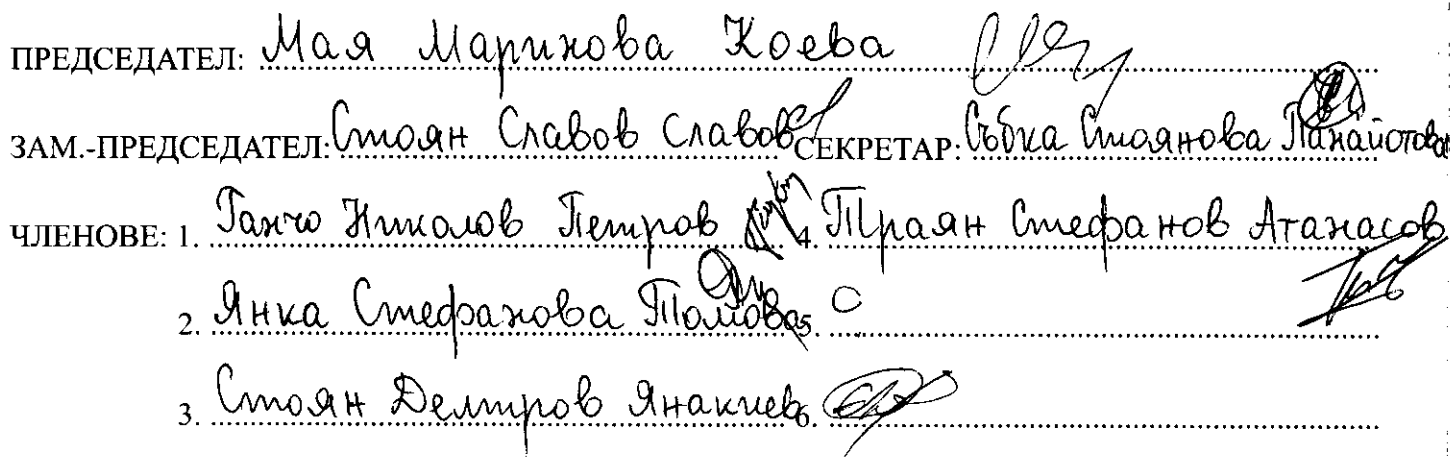 ПРЕДСЕДАТЕЛ: Мая Маринова Коева
ЗАМ.-ПРЕДСЕДАТЕЛ: Стоян Славов Славов СЕКРЕТАР: Събка Стоянова Панайотова
ЧЛЕНОВЕ: 1. Ганчо Николов Петров 4. Траян Стефанов Атанасов
2. Янка Стефанова Томова 5.
3. Стоян Янакиев 6.